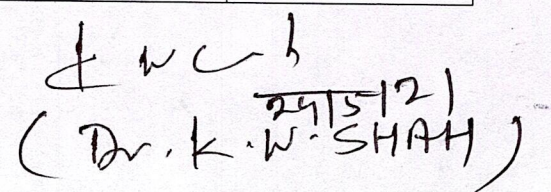 24/5/21
(Dr. K.W. SHAH)